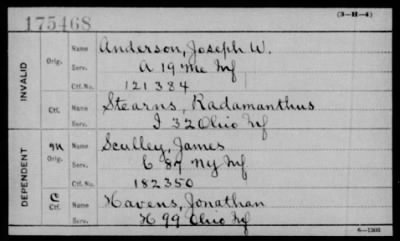 (3-H-4)
175468
INVALID
Orig. Name Anderson, Joseph W.
Serv. A 19 Me Inf
Ctf. No. 121384
Ctf. Name Stearns, Radamanthus
Serv. I 32 Ohio Inf
DEPENDENT
Orig. Name Sculley, James
Serv. E 87 NY Inf
Ctf. No. 182350
C Ctf. Name Havens, Jonathan
Serv. H 99 Ohio Inf